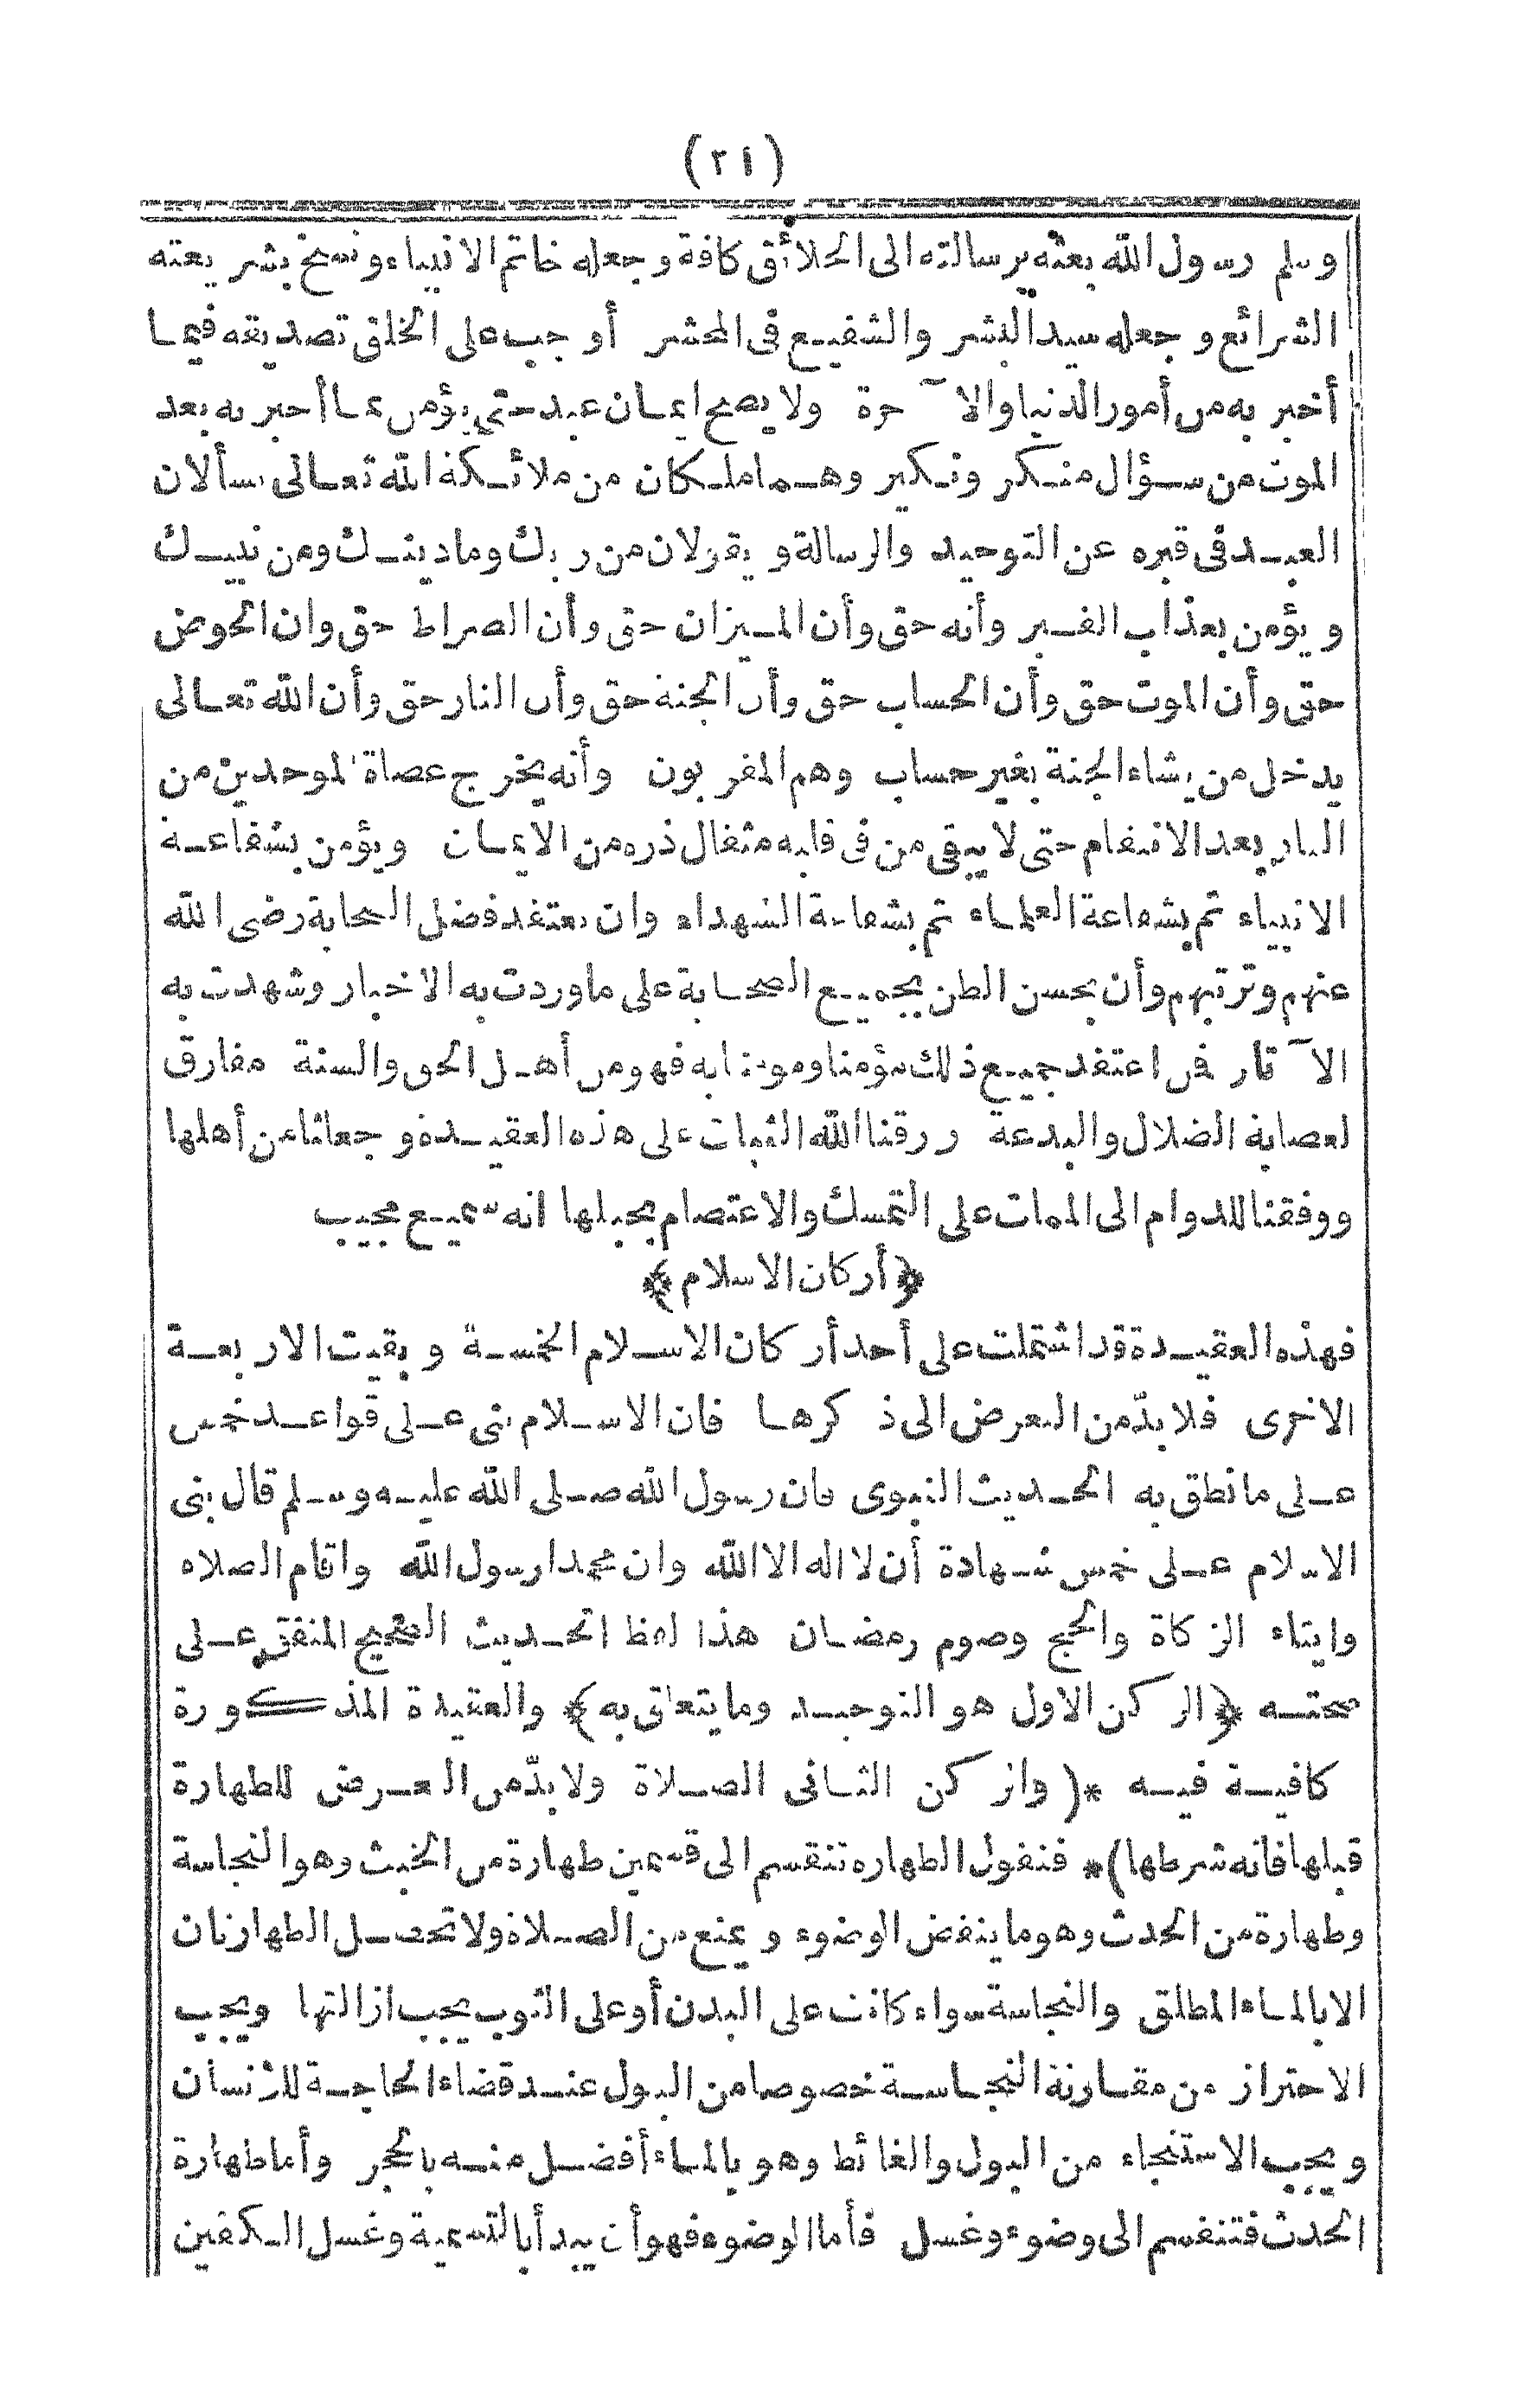 (٢١)
وسلم رسول الله بعثه برسالته الى الخلائق كافة وجعله خاتم الانبياء ونسخ بشريعته
الشرائع وجعله سيد البشر والشفيع فى المحشر أوجب على الخلق تصديقه فيما
أخبر به من أمور الدنيا والآخرة ولا يصح ايمان عبد حتى يؤمن بما أخبر به بعد
الموت من سؤال منكر ونكير وهما ملكان من ملائكة الله تعالى يسألان
العبد فى قبره عن التوحيد والرسالة ويقولان من ربك وما دينك ومن نبيك
ويؤمن بعذاب القبر وأنه حق وأن الميزان حق وأن الصراط حق وان الحوض
حق وأن الموت حق وأن الحساب حق وأن الجنة حق وأن النار حق وأن الله تعالى
يدخل من يشاء الجنة بغير حساب وهم المقربون وأنه يخرج عصاة الموحدين من
النار بعد الانتقام حتى لا يبقى من فى قلبه مثقال ذرة من الايمان ويؤمن بشفاعة
الانبياء ثم بشفاعة العلماء ثم بشفاعة الشهداء وان يعتقد فضل الصحابة رضى الله
عنهم وترتيبهم وأن يحسن الظن بجميع الصحابة على ما وردت به الاخبار وشهدت به
الآثار فمن اعتقد جميع ذلك مؤمنا وموقنا به فهو من أهل الحق والسنة مفارق
لعصابة الضلال والبدعة ورزقنا الله الثبات على هذه العقيدة وجعلنا من أهلها
ووفقنا للدوام الى الممات على التمسك والاعتصام بحبلها انه سميع مجيب
﴿أركان الاسلام﴾
فهذه العقيدة قد اشتملت على أحد أركان الاسلام الخمسة وبقيت الاربعة
الاخرى فلا بدّ من التعرض الى ذكرها فان الاسلام بنى على قواعد خمس
على ما نطق به الحديث النبوى فان رسول الله صلى الله عليه وسلم قال بنى
الاسلام على خمس شهادة أن لا اله الا الله وان محمدا رسول الله واقام الصلاة
وايتاء الزكاة والحج وصوم رمضان هذا لفظ الحديث الصحيح المتفق على
صحته ﴿الركن الاول هو التوحيد وما يتعلق به﴾ والعقيدة المذكورة
كافية فيه *(والركن الثانى الصلاة ولا بدّ من العرض للطهارة
قبلها فانه شرطها)* فنقول الطهارة تنقسم الى قسمين طهارة من الخبث وهو النجاسة
وطهارة من الحدث وهو ما ينقض الوضوء ويمنع من الصلاة ولا تحصل الطهارتان
الا بالماء المطلق والنجاسة سواء كانت على البدن أو على الثوب يجب ازالتها ويجب
الاحتراز من مقارنة النجاسة خصوصا من البول عند قضاء الحاجة للانسان
ويجب الاستنجاء من البول والغائط وهو بالماء أفضل منه بالحجر وأما طهارة
الحدث فتنقسم الى وضوء وغسل فأما الوضوء فهو أن يبدأ بالتسمية وغسل الكفين